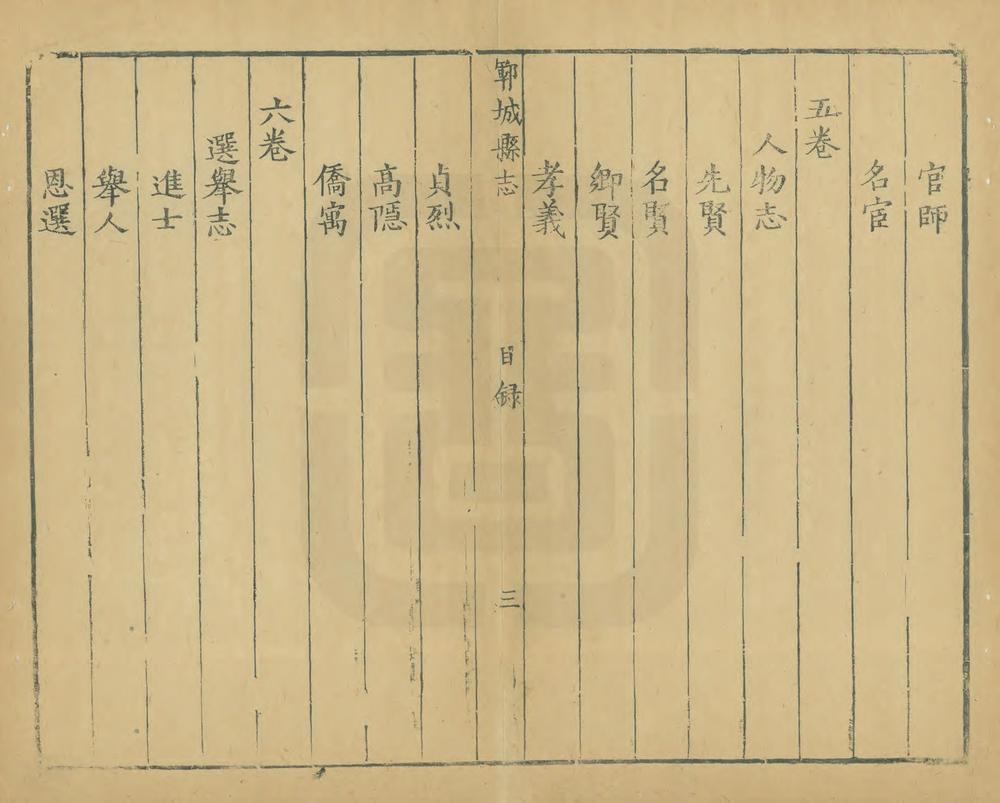 官師
名宦
五卷
人物志
先賢
名賢
鄉賢
孝義
鄆城縣志
目録
三
貞烈
高隱
僑寓
六卷
選舉志
進士
舉人
恩選